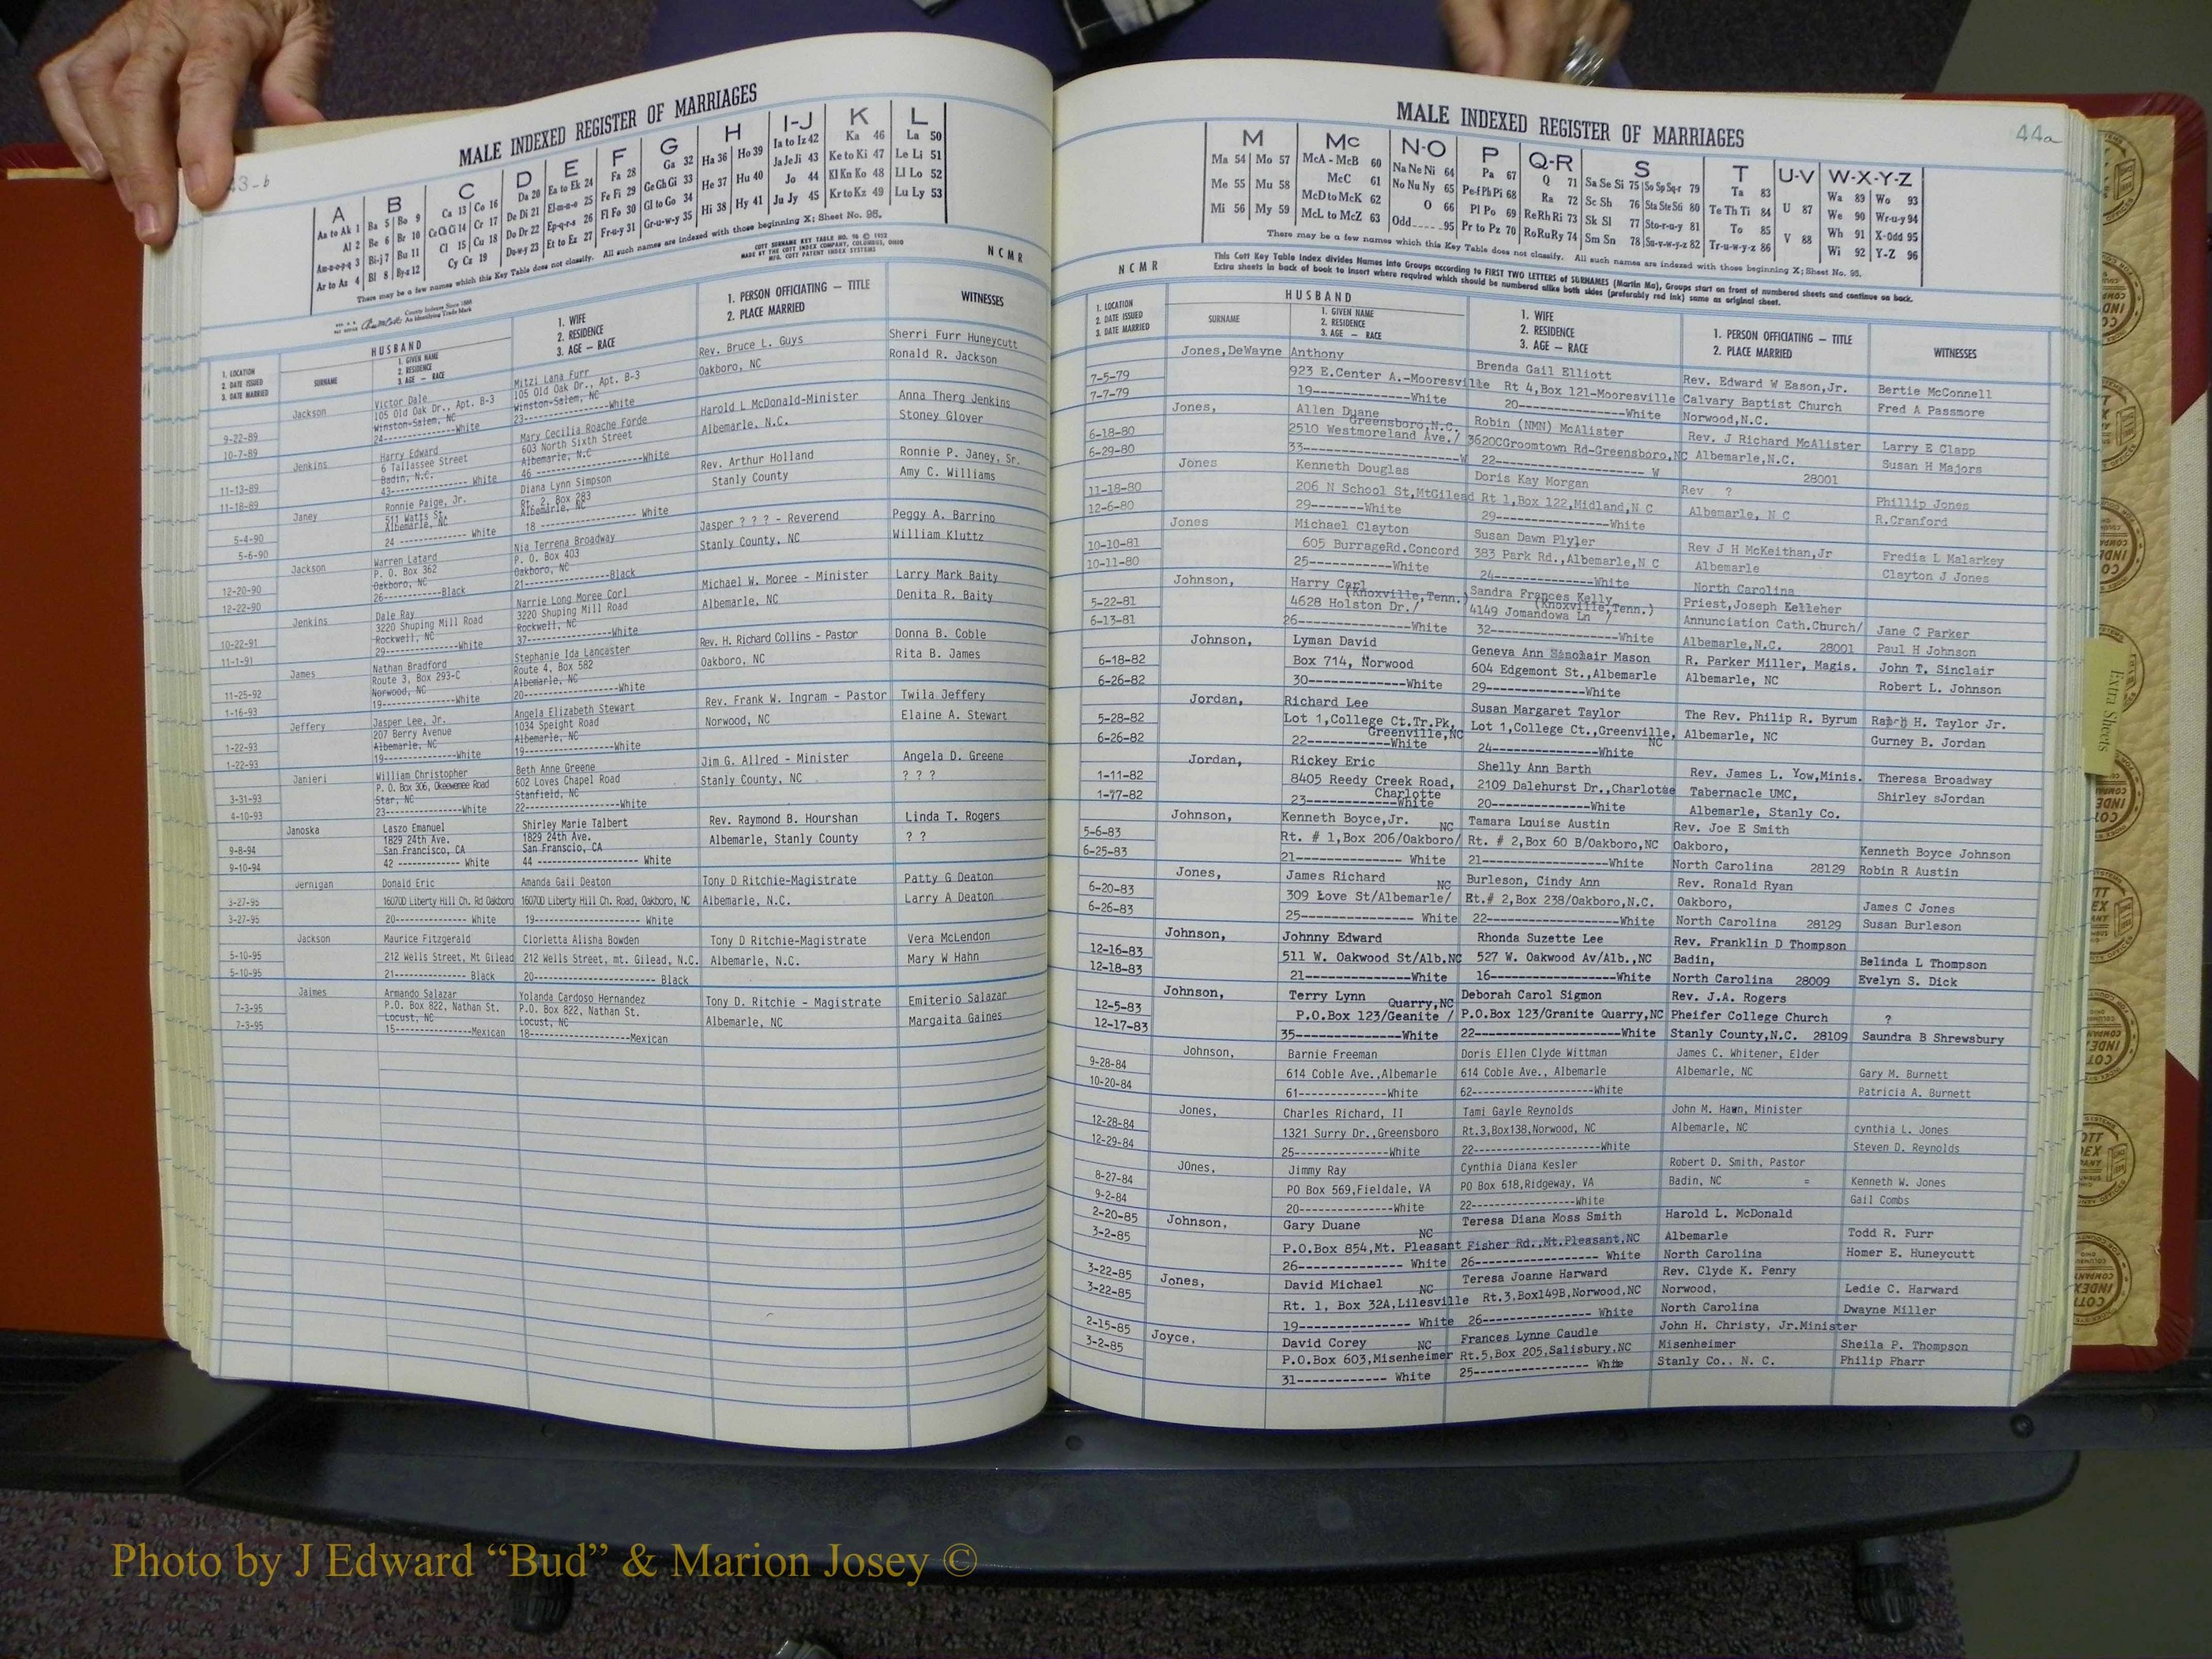 43-b
MALE INDEXED REGISTER OF MARRIAGES
A B C D E F G H I-J K L
Aa to Ak 1 Ba 5 Bo 9 Ca 13 Co 16 Da 20 Ea to Ek 24 Fa 28 Ga 32 Ha 36 Ho 39 Ia to Iz 42 Ka 46 La 50
Al 2 Be 6 Br 10 Ce Ch Ci 14 Cr 17 De Di 21 El-m-n-o 25 Fe Fi 29 Ge Gh Gi 33 He 37 Hu 40 Ja Je Ji 43 Ke to Ki 47 Le Li 51
Am-n-o-p-q 3 Bi-j 7 Bu 11 Cl 15 Cu 18 Do Dr 22 Ep-q-r-s 26 Fl Fo 30 Gl to Go 34 Hi 38 Hy 41 Jo 44 Kl Kn Ko 48 Ll Lo 52
Ar to Az 4 Bl 8 By-z 12 Cy Cz 19 Du-w-y 23 Et to Ez 27 Fr-u-y 31 Gr-u-w-y 35 Ju Jy 45 Kr to Kz 49 Lu Ly 53
There may be a few names which this Key Table does not classify. All such names are indexed with those beginning X; Sheet No. 95.
COTT SURNAME KEY TABLE NO. 96 © 1972
MADE BY THE COTT INDEX COMPANY, COLUMBUS, OHIO
MFG. COTT PATENT INDEX SYSTEMS
County Indexes Since 1888
An Identifying Trade Mark
N C M R
1. LOCATION
2. DATE ISSUED
3. DATE MARRIED
HUSBAND
SURNAME
1. GIVEN NAME
2. RESIDENCE
3. AGE – RACE
1. WIFE
2. RESIDENCE
3. AGE – RACE
1. PERSON OFFICIATING – TITLE
2. PLACE MARRIED
WITNESSES
Jackson Victor Dale Mitzi Lana Furr Rev. Bruce L. Guys Sherri Furr Huneycutt
105 Old Oak Dr., Apt. B-3 105 Old Oak Dr., Apt. B-3 Oakboro, NC Ronald R. Jackson
9-22-89 Winston-Salem, NC Winston-Salem, NC
10-7-89 24--------------White 23--------------White
Jenkins Harry Edward Mary Cecilia Roache Forde Harold L McDonald-Minister Anna Therg Jenkins
6 Tallassee Street 603 North Sixth Street Albemarle, N.C. Stoney Glover
11-13-89 Badin, N.C. Albemarle, N.C
11-18-89 43-------------- White 46 --------------White
Janey Ronnie Paige, Jr. Diana Lynn Simpson Rev. Arthur Holland Ronnie P. Janey, Sr.
511 Watts St. Rt. 2, Box 283 Stanly County Amy C. Williams
5-4-90 Albemarle, NC Albemarle, NC
5-6-90 24 -------------- White 18 -------------- White
Jackson Warren Latard Nia Terrena Broadway Jasper ? ? ? - Reverend Peggy A. Barrino
P. O. Box 362 P. O. Box 403 Stanly County, NC William Kluttz
12-20-90 Oakboro, NC Oakboro, NC
12-22-90 26------------Black 21--------------Black
Jenkins Dale Ray Narrie Long Moree Corl Michael W. Moree - Minister Larry Mark Baity
3220 Shuping Mill Road 3220 Shuping Mill Road Albemarle, NC Denita R. Baity
10-22-91 Rockwell, NC Rockwell, NC
11-1-91 29--------------White 37--------------White
James Nathan Bradford Stephanie Ida Lancaster Rev. H. Richard Collins - Pastor Donna B. Coble
Route 3, Box 293-C Route 4, Box 582 Oakboro, NC Rita B. James
11-25-92 Norwood, NC Albemarle, NC
1-16-93 19--------------White 20--------------White
Jeffery Jasper Lee, Jr. Angela Elizabeth Stewart Rev. Frank W. Ingram - Pastor Twila Jeffery
207 Berry Avenue 1034 Speight Road Norwood, NC Elaine A. Stewart
1-22-93 Albemarle, NC Albemarle, NC
1-22-93 19--------------White 19--------------White
Janieri William Christopher Beth Anne Greene Jim G. Allred - Minister Angela D. Greene
P. O. Box 306, Okeewenee Road 602 Loves Chapel Road Stanly County, NC ? ? ?
3-31-93 Star, NC Stanfield, NC
4-10-93 23--------------White 22--------------White
Janoska Laszo Emanuel Shirley Marie Talbert Rev. Raymond B. Hourshan Linda T. Rogers
1829 24th Ave. 1829 24th Ave. Albemarle, Stanly County ? ?
9-8-94 San Francisco, CA San Franscio, CA
9-10-94 42 ------------ White 44 ------------------- White
Jernigan Donald Eric Amanda Gail Deaton Tony D Ritchie-Magistrate Patty G Deaton
3-27-95 160700 Liberty Hill Ch. Rd Oakboro 160700 Liberty Hill Ch. Road, Oakboro, NC Albemarle, N.C. Larry A Deaton
3-27-95 20-------------- White 19------------------- White
Jackson Maurice Fitzgerald Clorletta Alisha Bowden Tony D Ritchie-Magistrate Vera McLendon
5-10-95 212 Wells Street, Mt Gilead 212 Wells Street, mt. Gilead, N.C. Albemarle, N.C. Mary W Hahn
5-10-95 21-------------- Black 20---------------------- Black
Jaimes Armando Salazar Yolanda Cardoso Hernandez Tony D. Ritchie - Magistrate Emiterio Salazar
7-3-95 P.O. Box 822, Nathan St. P.O. Box 822, Nathan St. Albemarle, NC Margaita Gaines
7-3-95 Locust, NC Locust, NC
15--------------Mexican 18------------------Mexican
44a
MALE INDEXED REGISTER OF MARRIAGES
M Mc N-O P Q-R S T U-V W-X-Y-Z
Ma 54 Mo 57 McA - McB 60 Na Ne Ni 64 Pa 67 Q 71 Sa Se Si 75 So Sp Sq-r 79 Ta 83 U 87 Wa 89 Wo 93
Me 55 Mu 58 McC 61 No Nu Ny 65 Pe-f Ph Pi 68 Ra 72 Sc Sh 76 Sta Ste Sti 80 Te Th Ti 84 V 88 We 90 Wr-u-y 94
Mi 56 My 59 McD to McK 62 O 66 Pl Po 69 Re Rh Ri 73 Sk Sl 77 Sto-r-u-y 81 To 85 Wh 91 X-Odd 95
McL to McZ 63 Odd_____95 Pr to Pz 70 Ro Ru Ry 74 Sm Sn 78 Su-v-w-y-z 82 Tr-u-w-y-z 86 Wi 92 Y-Z 96
There may be a few names which this Key Table does not classify. All such names are indexed with those beginning X; Sheet No. 95.
This Cott Key Table Index divides Names into Groups according to FIRST TWO LETTERS of SURNAMES (Martin Ma), Groups start on front of numbered sheets and continue on back.
Extra sheets in back of book to insert where required which should be numbered alike both sides (preferably red ink) same as original sheet.
N C M R
1. LOCATION
2. DATE ISSUED
3. DATE MARRIED
HUSBAND
SURNAME
1. GIVEN NAME
2. RESIDENCE
3. AGE – RACE
1. WIFE
2. RESIDENCE
3. AGE – RACE
1. PERSON OFFICIATING – TITLE
2. PLACE MARRIED
WITNESSES
Jones,DeWayne Anthony Brenda Gail Elliott Rev. Edward W Eason,Jr. Bertie McConnell
7-5-79 923 E.Center A.-Mooresville Rt 4,Box 121-Mooresville Calvary Baptist Church Fred A Passmore
7-7-79 19--------------White 20--------------White Norwood,N.C.
Jones, Allen Duane Robin (NMN) McAlister Rev. J Richard McAlister Larry E Clapp
Greensboro,N.C.
6-18-80 2510 Westmoreland Ave./ 3620CGroomtown Rd-Greensboro,NC Albemarle,N.C. Susan H Majors
6-29-80 33---------------------W 22--------------------- W 28001
Jones Kenneth Douglas Doris Kay Morgan Rev ? Phillip Jones
11-18-80 206 N School St,MtGilead Rt 1,Box 122,Midland,N C Albemarle, N C R.Cranford
12-6-80 29--------White 29--------------White
Jones Michael Clayton Susan Dawn Plyler Rev J H McKeithan,Jr Fredia L Malarkey
10-10-81 605 BurrageRd.Concord 383 Park Rd.,Albemarle,N C Albemarle Clayton J Jones
10-11-80 25-----------White 24--------------White North Carolina
Johnson, Harry Carl Sandra Frances Kelly Priest,Joseph Kelleher
(Knoxville,Tenn.) (Knoxville,Tenn.)
5-22-81 4628 Holston Dr./ 4149 Jomandowa Ln / Annunciation Cath.Church/ Jane C Parker
6-13-81 26--------------White 32--------------White Albemarle,N.C. 28001 Paul H Johnson
Johnson, Lyman David Geneva Ann Sinclair Mason R. Parker Miller, Magis. John T. Sinclair
6-18-82 Box 714, Norwood 604 Edgemont St.,Albemarle Albemarle, NC Robert L. Johnson
6-26-82 30--------------White 29--------------White
Jordan, Richard Lee Susan Margaret Taylor The Rev. Philip R. Byrum Ralph H. Taylor Jr.
5-28-82 Lot 1,College Ct.Tr.Pk, Lot 1,College Ct.,Greenville, Albemarle, NC Gurney B. Jordan
Greenville,NC NC
6-26-82 22-----------White 24--------------White
Jordan, Rickey Eric Shelly Ann Barth Rev. James L. Yow,Minis. Theresa Broadway
1-11-82 8405 Reedy Creek Road, 2109 Dalehurst Dr.,Charlotte Tabernacle UMC, Shirley sJordan
Charlotte
1-17-82 23-----------White 20--------------White Albemarle, Stanly Co.
Johnson, Kenneth Boyce,Jr. NC Tamara Louise Austin Rev. Joe E Smith
5-6-83 Rt. # 1,Box 206/Oakboro/ Rt. # 2,Box 60 B/Oakboro,NC Oakboro, Kenneth Boyce Johnson
6-25-83 21-------------- White 21----------------White North Carolina 28129 Robin R Austin
Jones, James Richard NC Burleson, Cindy Ann Rev. Ronald Ryan
6-20-83 309 Love St/Albemarle/ Rt.# 2,Box 238/Oakboro,N.C. Oakboro, James C Jones
6-26-83 25-------------- White 22------------------White North Carolina 28129 Susan Burleson
Johnson, Johnny Edward Rhonda Suzette Lee Rev. Franklin D Thompson
12-16-83 511 W. Oakwood St/Alb.NC 527 W. Oakwood Av/Alb.,NC Badin, Belinda L Thompson
12-18-83 21--------------White 16----------------White North Carolina 28009 Evelyn S. Dick
Johnson, Terry Lynn Quarry,NC Deborah Carol Sigmon Rev. J.A. Rogers
12-5-83 P.O.Box 123/Geanite / P.O.Box 123/Granite Quarry,NC Pheifer College Church ?
12-17-83 35--------------White 22------------------White Stanly County,N.C. 28109 Saundra B Shrewsbury
Johnson, Barnie Freeman Doris Ellen Clyde Wittman James C. Whitener, Elder
9-28-84 614 Coble Ave.,Albemarle 614 Coble Ave., Albemarle Albemarle, NC Gary M. Burnett
10-20-84 61--------------White 62------------------White Patricia A. Burnett
Jones, Charles Richard, II Tami Gayle Reynolds John M. Hawn, Minister
12-28-84 1321 Surry Dr.,Greensboro Rt.3,Box138,Norwood, NC Albemarle, NC cynthia L. Jones
12-29-84 25--------------White 22------------------White Steven D. Reynolds
JOnes, Jimmy Ray Cynthia Diana Kesler Robert D. Smith, Pastor
8-27-84 PO Box 569,Fieldale, VA PO Box 618,Ridgeway, VA Badin, NC = Kenneth W. Jones
9-2-84 20--------------White 22---------------White Gail Combs
2-20-85 Johnson, Gary Duane Teresa Diana Moss Smith Harold L. McDonald
NC
3-2-85 P.O.Box 854,Mt. Pleasant Fisher Rd.,Mt.Pleasant,NC Albemarle Todd R. Furr
26-------------- White 26-------------- White North Carolina Homer E. Huneycutt
3-22-85 Jones, David Michael NC Teresa Joanne Harward Rev. Clyde K. Penry
3-22-85 Rt. 1, Box 32A,Lilesville Rt.3,Box149B,Norwood,NC Norwood, Ledie C. Harward
19-------------- White 26-------------- White North Carolina Dwayne Miller
2-15-85 Joyce, David Corey NC Frances Lynne Caudle John H. Christy, Jr.Minister
3-2-85 P.O.Box 603,Misenheimer Rt.5,Box 205,Salisbury,NC Misenheimer Sheila P. Thompson
31------------ White 25-------------- White Stanly Co.. N. C. Philip Pharr
Extra Sheets
Photo by J Edward “Bud” & Marion Josey ©